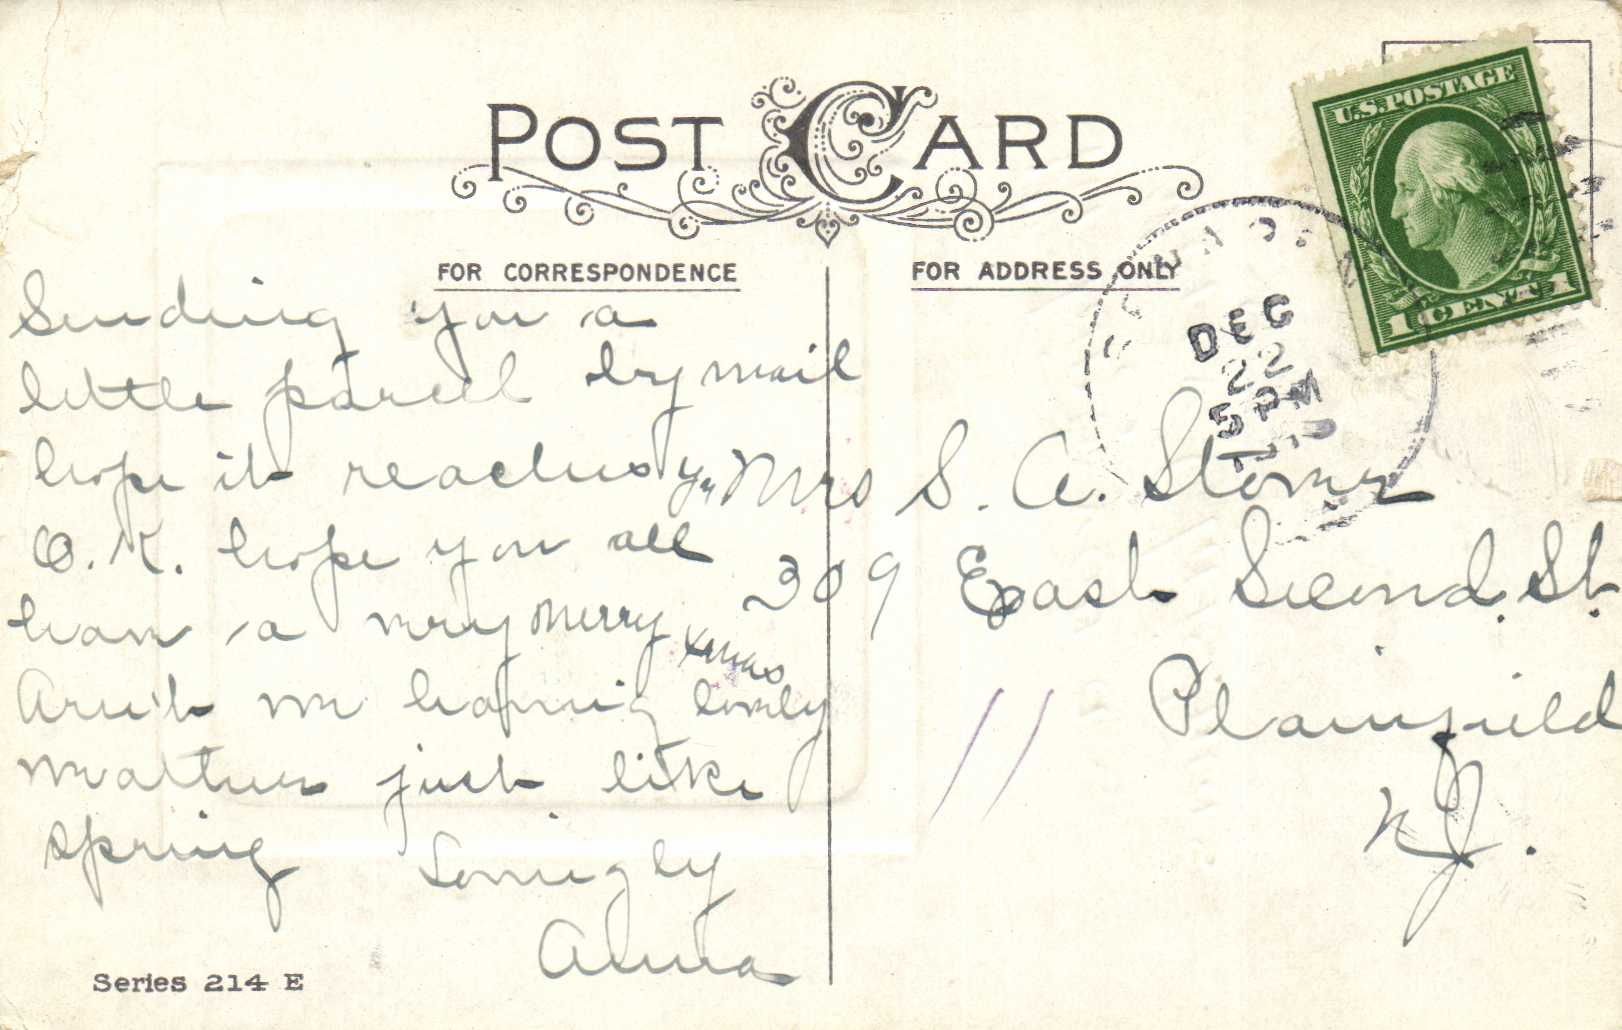 POST CARD
FOR CORRESPONDENCE
FOR ADDRESS ONLY
U.S.POSTAGE
1 CENT 1
DEC
22
5 PM
Sending you a
little parcel by mail
hope it reaches you
O.K. hope you all
have a very Merry
Xmas
Aren't we having lovely
weather just like
spring
Lovingly
Anna
Mrs S. A. Stover
309 East Second St.
Plainfield
N.J.
Series 214 E